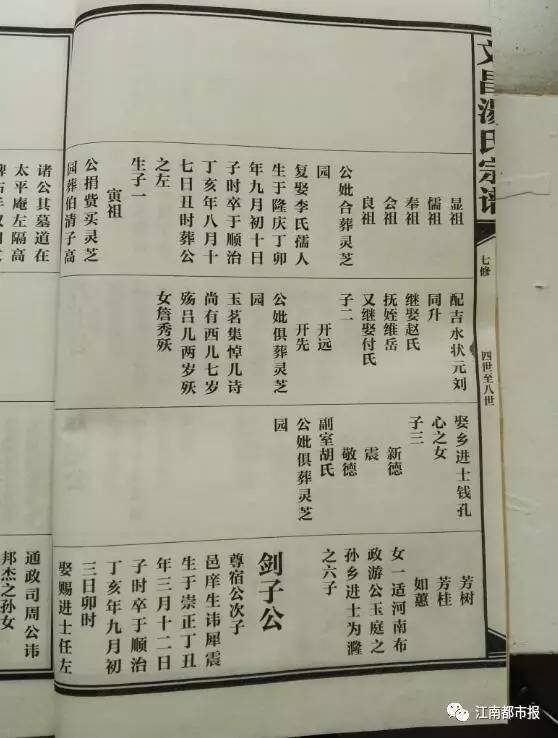 文昌湯氏宗谱
七修
四世至八世
显祖
儒祖
奉祖
会祖
良祖
公妣合葬灵芝
园
复娶李氏孺人
生于隆庆丁卯
年九月初十日
子时卒于顺治
丁亥年八月十
七日丑时葬公
之左
生子一
寅祖
公捐赀买灵芝
园葬伯清子高
诸公其墓道在
太平庵左隔高
配吉水状元刘
同升
继娶赵氏
抚姪维岳
又继娶付氏
子二
开远
开先
公妣俱葬灵芝
园
玉茗集悼儿诗
尚有西儿七岁
殇吕儿两岁殀
女詹秀殀
娶乡进士钱孔
心之女
子三
新德
震
敬德
副室胡氏
公妣俱葬灵芝
园
芳树
芳桂
如蕙
女一适河南布
政游公玉庭之
孙乡进士为漋
之六子
剑子公
尊宿公次子
邑庠生讳犀震
生于崇正丁丑
年三月十二日
子时卒于顺治
丁亥年九月初
三日卯时
娶赐进士任左
通政司周公讳
邦杰之孙女
江南都市报